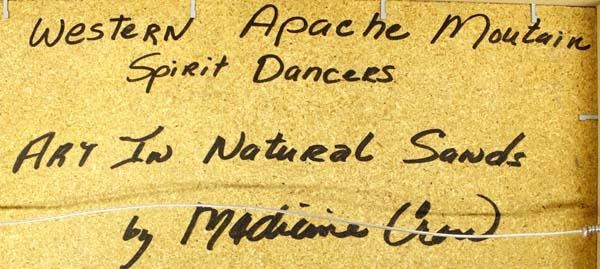 Western Apache Moutain
Spirit Dancers
Art In Natural Sands
by Medicine Crow